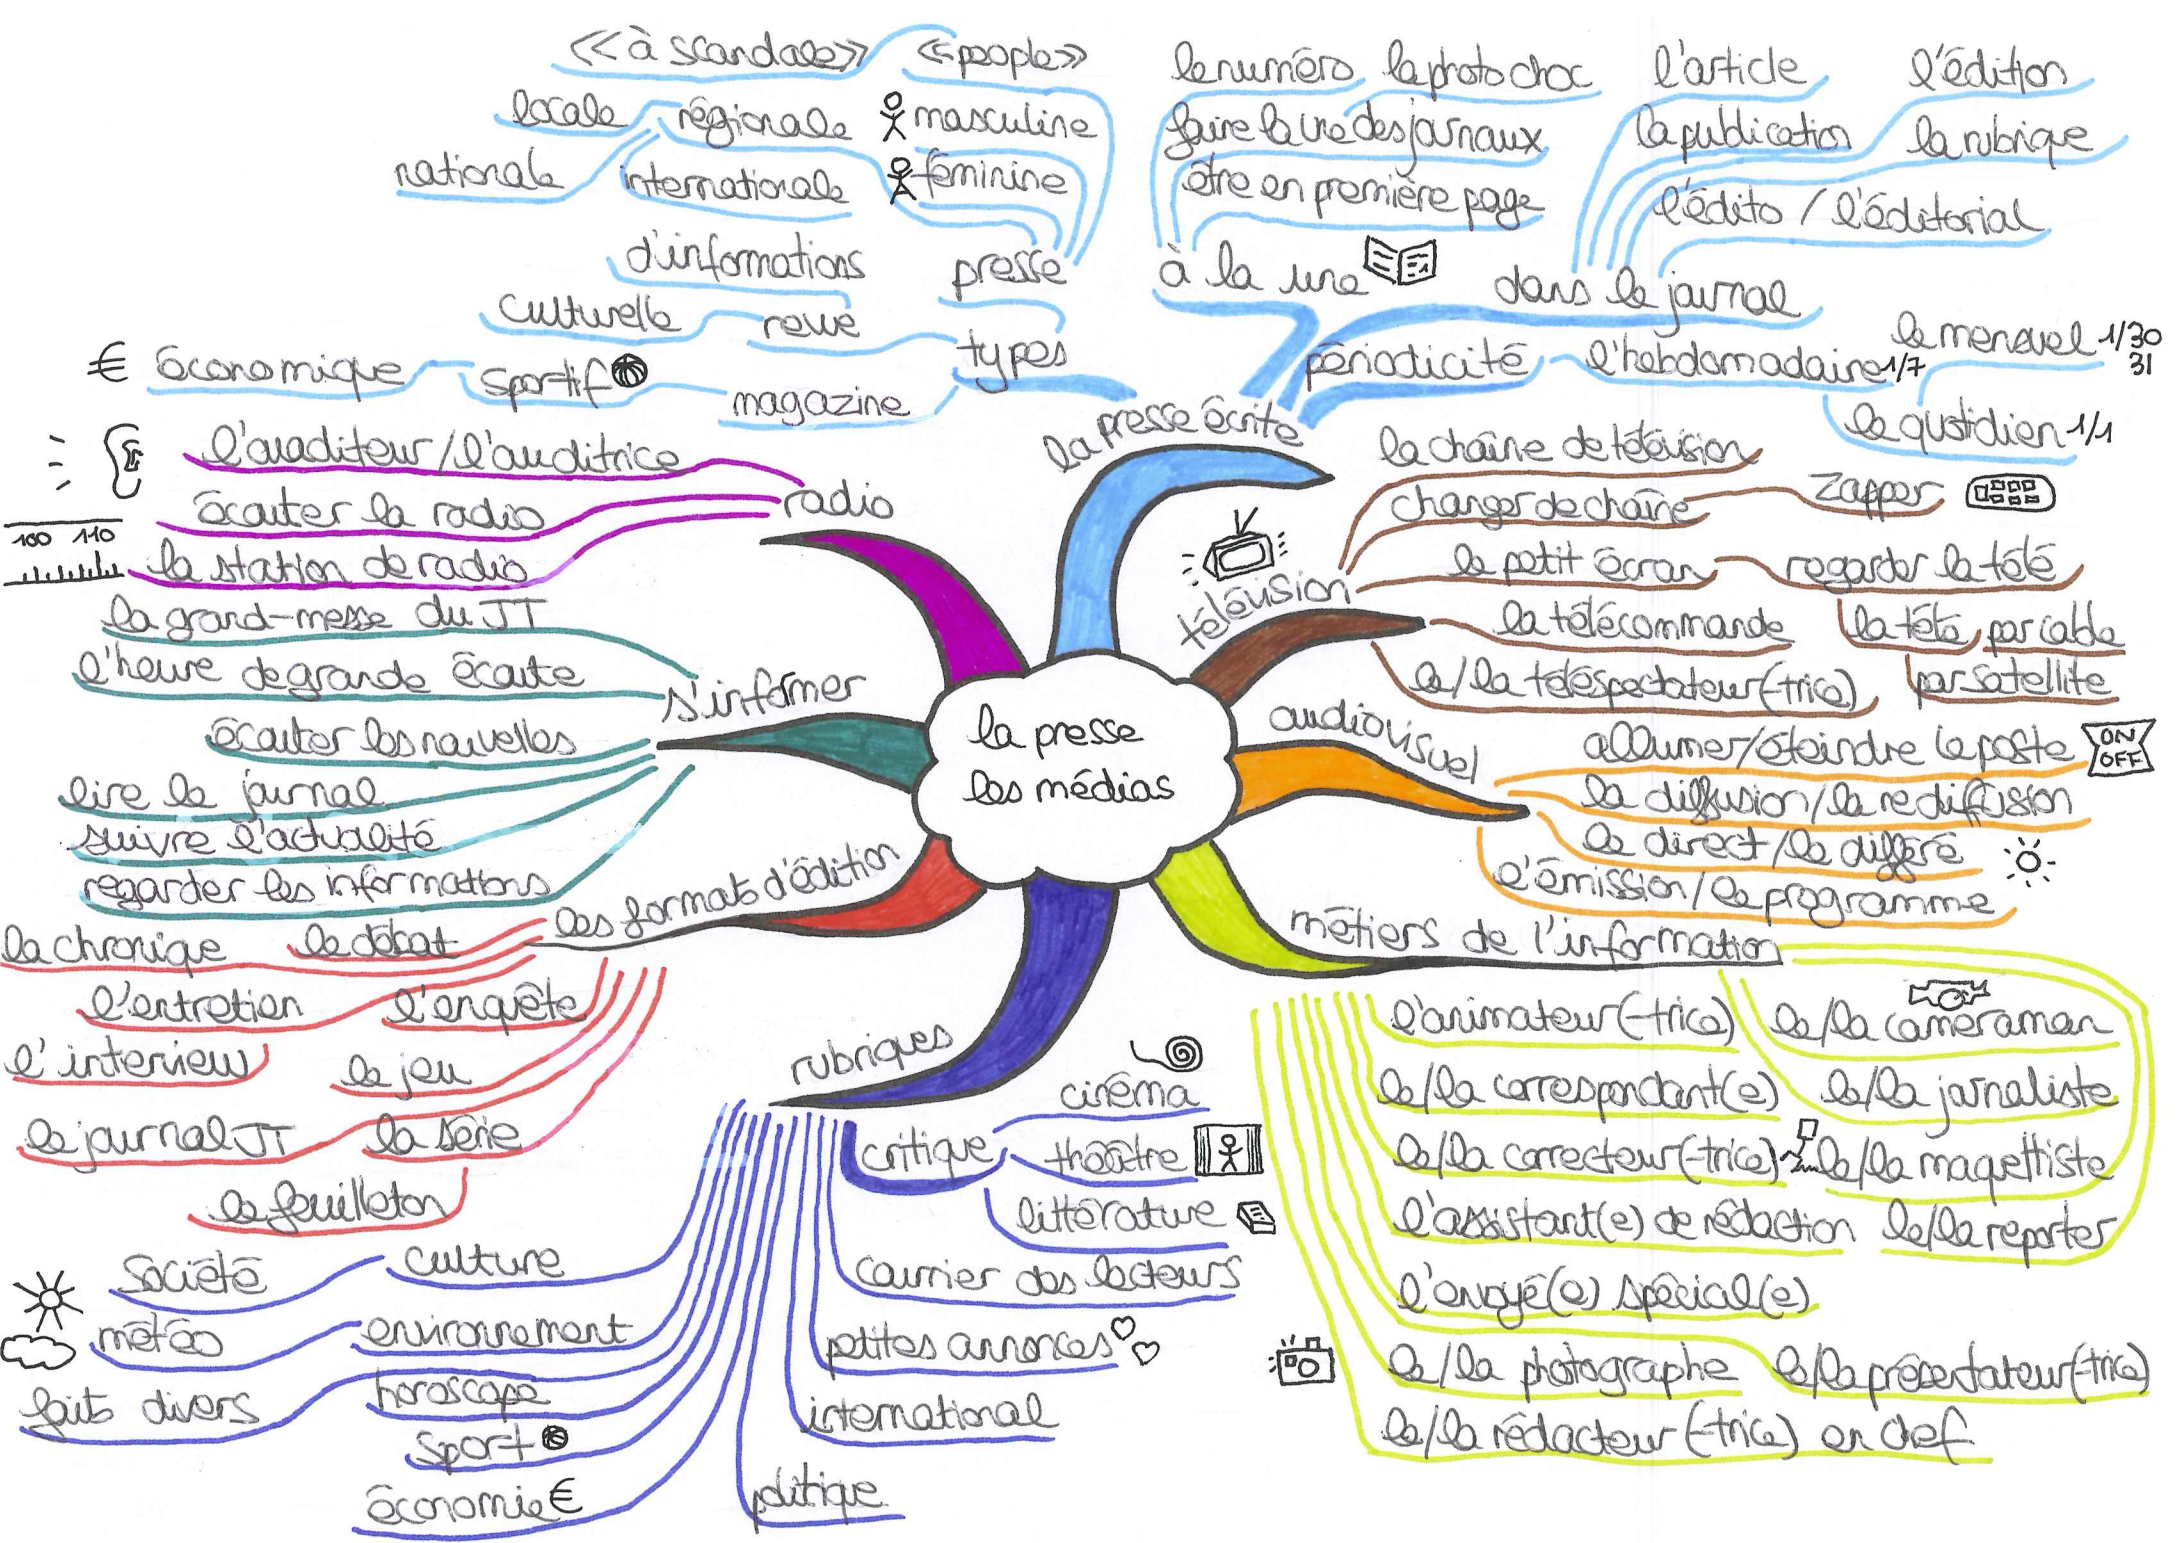 la presse
les médias
la presse écrite
types
presse
« à scandale »
« people »
locale
régionale
masculine
nationale
internationale
féminine
revue
d'informations
culturelle
magazine
sportif
€ économique
à la une
le numéro
la photo choc
faire la une des journaux
être en première page
1
dans le journal
l'article
l'édition
la publication
la rubrique
l'édito / l'éditorial
périodicité
l'hebdomadaire 1/7
le mensuel 1/30
31
le quotidien 1/1
télévision
la chaîne de télévision
changer de chaîne
zapper
le petit écran
regarder la télé
la télé par cable
par satellite
la télécommande
le/la téléspectateur(-trice)
audiovisuel
allumer/éteindre le poste
ON
OFF
la diffusion/la rediffusion
le direct/le différé
l'émission/le programme
métiers de l'information
l'animateur(-trice)
le/la caméraman
le/la correspondant(e)
le/la journaliste
le/la correcteur(-trice)
le/la maquettiste
l'assistant(e) de rédaction
le/la reporter
l'envoyé(e) spécial(e)
le/la photographe
le/la présentateur(-trice)
le/la rédacteur(-trice) en chef
rubriques
critique
cinéma
théâtre
littérature
courrier des lecteurs
petites annonces
international
politique
culture
société
environnement
météo
faits divers
horoscope
sport
économie €
les formats d'édition
la chronique
le débat
l'entretien
l'enquête
l'interview
le jeu
le journal JT
la série
le feuilleton
s'informer
la grand-messe du JT
l'heure de grande écoute
écouter les nouvelles
lire le journal
suivre l'actualité
regarder les informations
radio
l'auaditeur/l'auditrice
écouter la radio
100 110
la station de radio